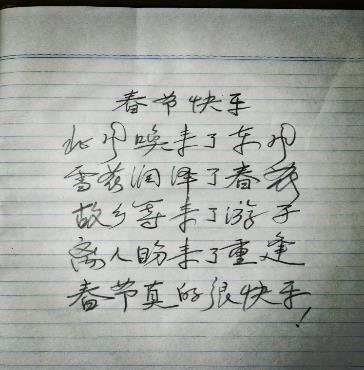 春节快乐
北风唤来了东风
雪花润泽了春花
故乡等来了游子
离人盼来了重逢
春节真的很快乐！